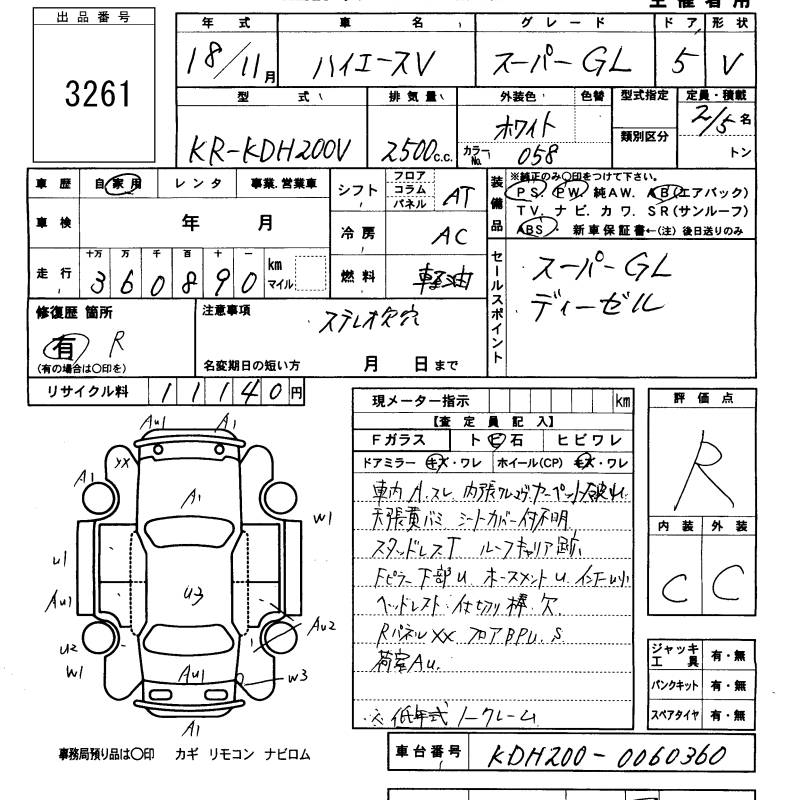 出品番号
3261
年式 車名 グレード ドア 形状
18/11月 ハイエースV スーパーGL 5 V
型式 排気量 外装色 色替 型式指定 定員・積載
KR-KDH200V 2500c.c. ホワイト カラーNo. 058 類別区分 2/5名
トン
車歴 自家用 レンタ 事業.営業車
車検 年 月
走行 十万 万 千 百 十 一 km マイル
360890
シフト フロア コラム パネル AT
冷房 AC
燃料 軽油
装備品 ※純正のみ○印をつけて下さい。
PS. PW. 純AW. AB(エアバック)
TV. ナビ. カワ. SR(サンルーフ)
ABS ・ 新車保証書←(注)後日送りのみ
セールスポイント
スーパーGL
ディーゼル
修復歴 箇所
有 R
(有の場合は○印を)
注意事項
ステレオ欠穴
名変期日の短い方 月 日まで
リサイクル料 11140円
現メーター指示 km
【査定員記入】
Fガラス トビ石 ヒビワレ
ドアミラー キズ・ワレ ホイール(CP) キズ・ワレ
車内 A.スレ
天張黄バミ シートカバー付不明
スタッドレスT ルーフキャリア跡
Fピラー下部U ホースメントU
ヘッドレスト・仕切り棒 欠
RパネルXX フロアBPU. S
荷室Au.
※低年式ノークレーム
評価点
R
内装 外装
C C
ジャッキ工具 有・無
パンクキット 有・無
スペアタイヤ 有・無
Au1 A1
A1 YX A1 W1
U1 U3
Au1 Au2
U2
W1 Au1 W3
A1
事務局預り品は○印 カギ リモコン ナビロム
車台番号 KDH200-0060360